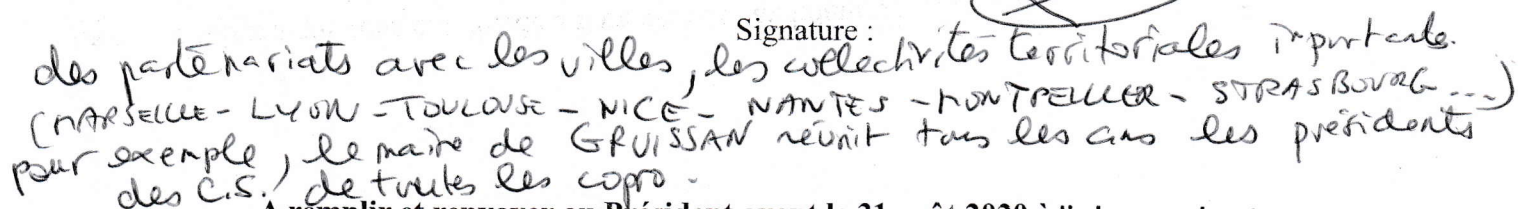 Signature :
des partenariats avec les villes, les collectivités territoriales importante.
(MARSEILLE - LYON - TOULOUSE - NICE - NANTES - MONTPELLIER - STRASBOURG ...)
pour exemple, le maire de GRUISSAN réunit tous les ans les présidents
des C.S. / de toutes les copro.
A remplir et renvoyer au Président avant le 31 août 2020 à